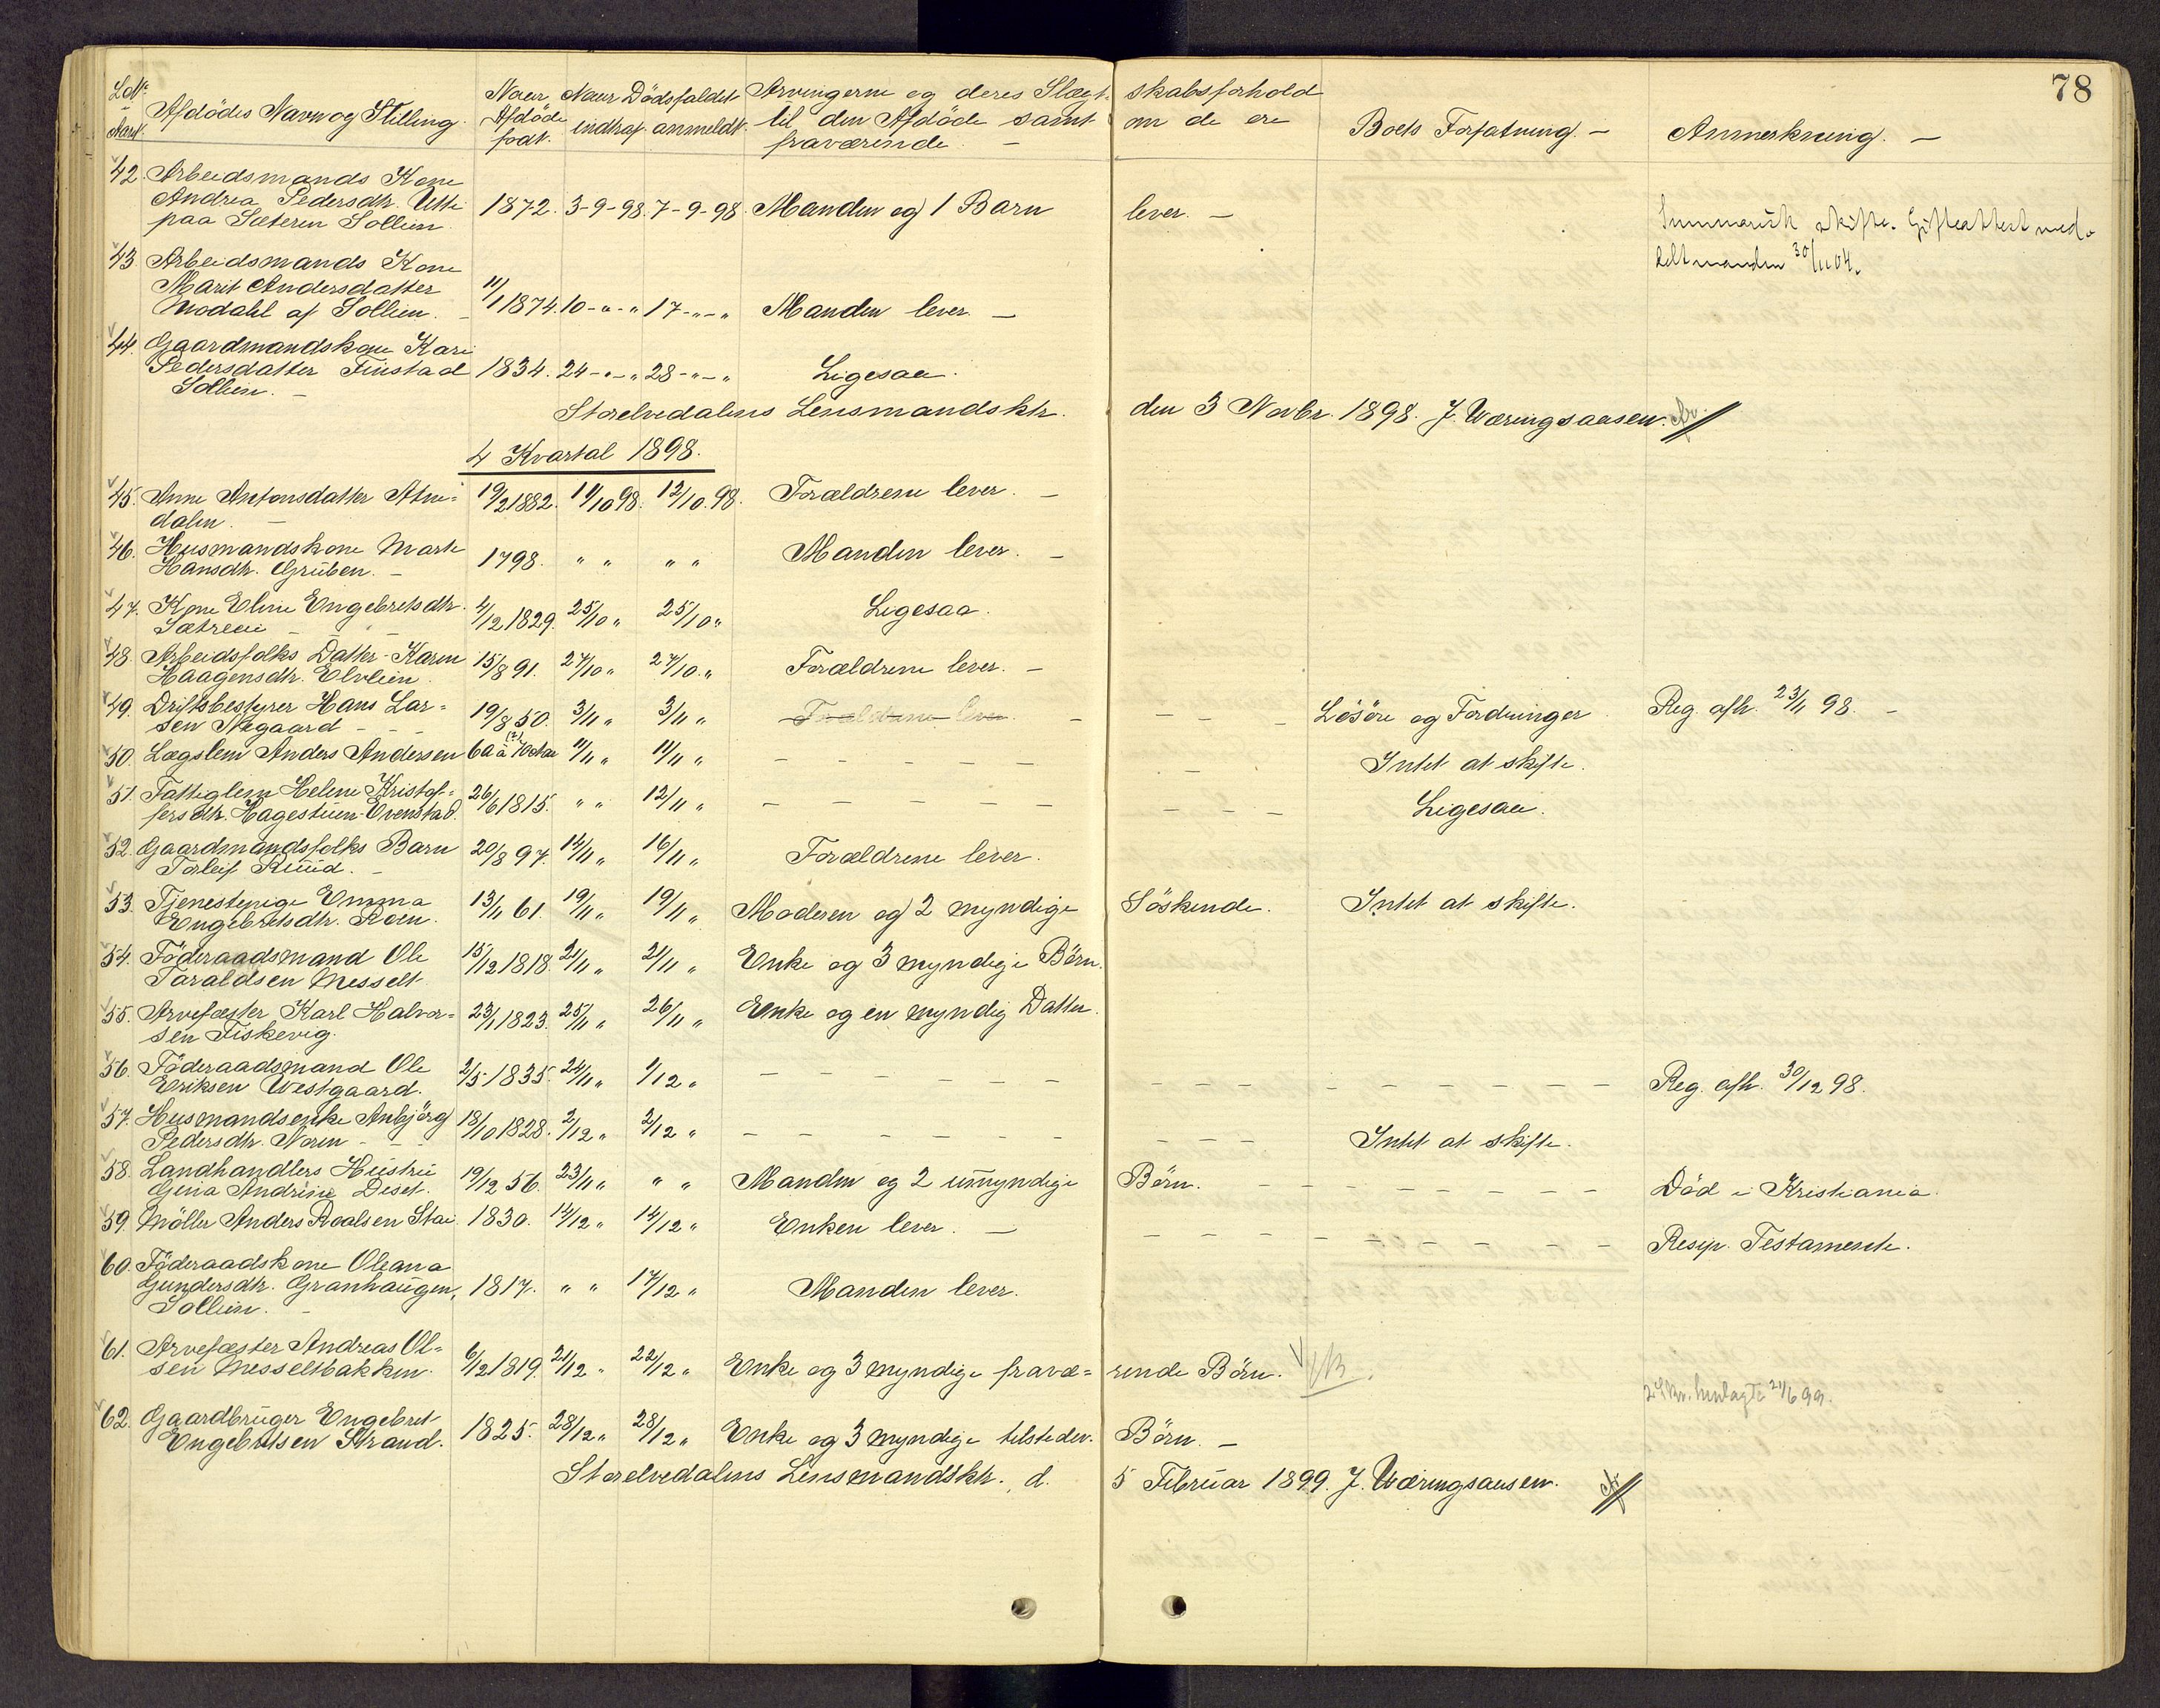 78
LNo Afdödes Navn og Stilling. Naar Afdöde födt. Naar Dödsfaldet indtraf. anmeldt. Arvingerne og deres Slægtskabsforhold til den Afdöde samt om de ere fraværende — Boets Forfatning. — Anmerkning. —
42. Arbeidsmands Kone
Andrea Pedersdtr. Utti 1872. 3-9-98. 7-9-98. Manden og 1 Barn lever. —
paa Sæteren Sollien.
Summarisk skifte. Gifteattest med-
delt manden 30/11 04.
43. Arbeidsmands Kone
Marit Andersdatter
Modahl af Sollien. — 11/1 1874. 10-"-" 17-"-" Manden lever. —
44. Gaardmandskone Kari
Pedersdatter Finstad 1834. 24-"-" 28-"-" Ligesaa.
Sollien. —
Storelvedalens Lensmandsktr. den 3 Novbr. 1898. J. Wæringsaasen.
4 Kvartal 1898.
45. Anne Antonsdatter Atne- 19/2 1882. 11/10 98. 12/10. 98. Forældrene lever. —
dalen. —
46. Husmandskone Marte
Hansdtr. Gruben. — 1798. " " " " Manden lever. —
47. Kone Eline Engebretsdtr. 4/12 1829. 25/10 " 25/10 " Ligesaa.
Sætreeie —
48. Arbeidsfolks Datter Karen 15/8 91. 27/10 " 27/10. " Forældrene lever. —
Haagensdtr. Elvlien.
49. Driftsbestyrer Hans Lar-
sen Negaard — 19/8 50. 3/11 " 3/11 " Forældrene lever. — Lösöre og Fordringer Reg. afh. 23/11 98. —
50. Lægslem Anders Andersen 60 à 70 Aar (?) 11/11 " 11/11 " — Intet at skifte.
51. Fattiglem Helene Kristof-
fersdtr. Hagestuen-Evenstad. 26/6 1815. " " 12/11 " — Ligesaa.
52. Gaardmandsfolks Barn 20/8 97. 14/11 " 16/11 " Forældrene lever.
Torleif Ruud. —
53. Tjenestepige Emma 13/11 61. 19/11 " 19/11 " Moderen og 2 myndige Söskende. Intet at skifte.
Engebretsdtr. Koen.
54. Föderaadsmand Ole 15/12 1818. 21/11 " 21/11 " Enke og 3 myndige Börn.
Taraldsen Messelt
55. Arvefæster Karl Halvor- 23/11 1823. 25/11 " 26/11 " Enke og en myndig Datter.
sen Fiskevig.
56. Föderaadsmand Ole 2/5 1835. 24/11 " 1/12 " — Reg. afh. 30/12 98.
Eriksen Westgaard.
57. Husmandsenke Anbjörg 18/10 1828. 2/12 " 2/12 " — Intet at skifte.
Pedersdtr. Noren —
58. Landhandlers Hustru 19/12 56. 23/11 " " " Manden og 2 umyndige Börn. — Död i Kristiania.
Gina Andrine Deset.
59. Möller Anders Roalsen Stai. 1830. 14/12 " 14/12 " Enken lever. — Resip. Testamente.
60. Föderaadskone Oleana
Gundersdtr. Granhaugen, 1817. " " 17/12 " Manden lever.
Sollien. —
61. Arvefæster Andreas Ol-
sen Messeltbakken. 6/12 1819. 21/12 " 22/12 " Enke og 3 myndige fravæ-rende Börn.
henlagte 21/6 99.
62. Gaardbruger Engebret 1825. 28/12 " 28/12 " Enke og 3 myndige tilstedev. Börn. —
Engebretsen Strand.
Storelvedalens Lensmandsktr., d. 5 Februar 1899. J. Wæringsaasen.